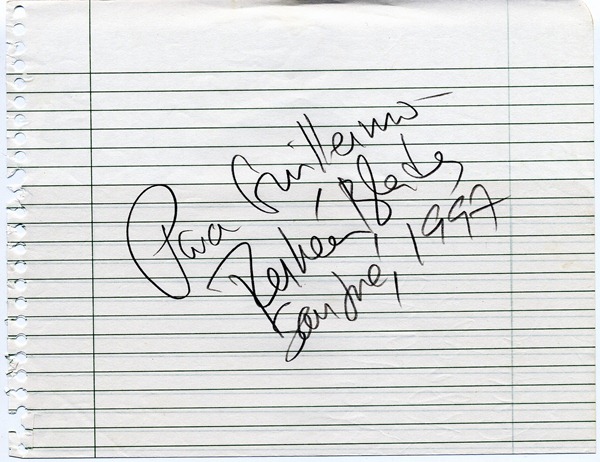 Para Guillermo-
Rubén Blades,
San José, 1997